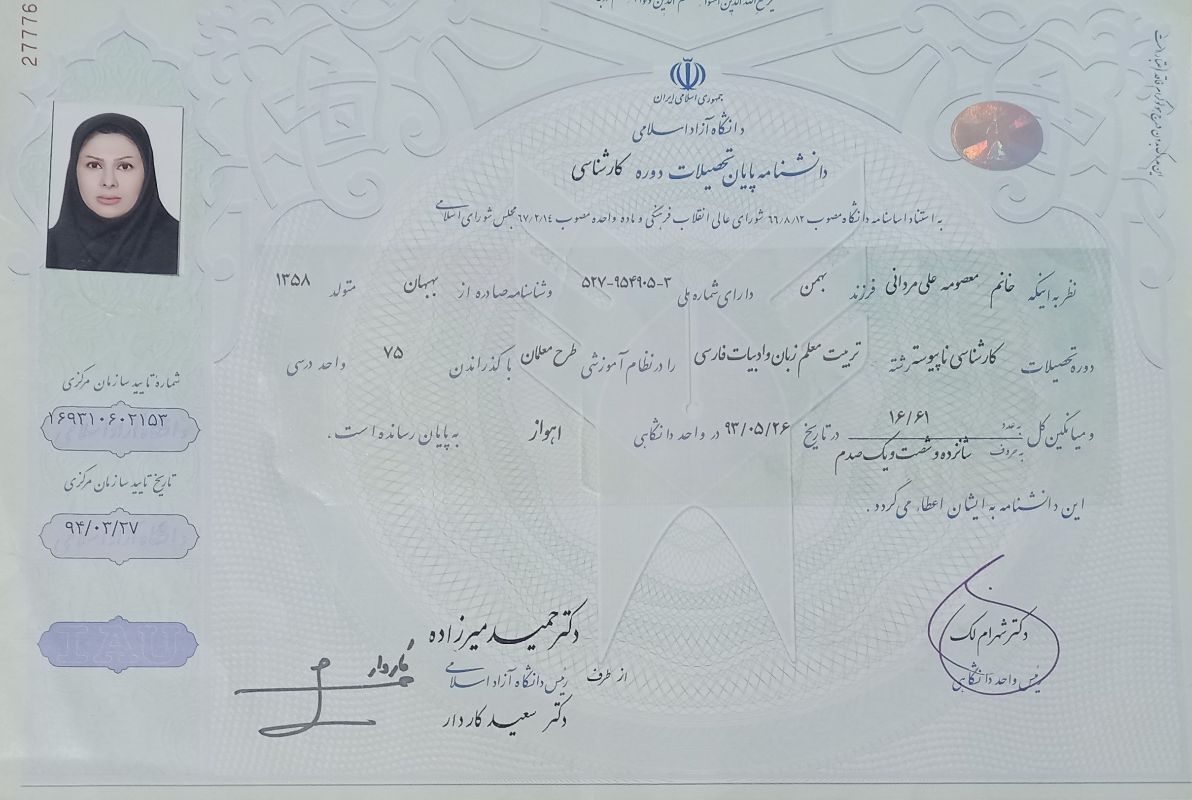 27776
جمهوری اسلامی ایران
دانشگاه آزاد اسلامی
دانشنامه پایان تحصیلات دوره کارشناسی
به استناد اساسنامه دانشگاه مصوب ۶۶/۸/۱۲ شورای عالی انقلاب فرهنگی و ماده واحده مصوب ۶۷/۲/۱۴ مجلس شورای اسلامی
نظر به اینکه خانم معصومه علی مردانی فرزند بهمن دارای شماره ملی ۵۲۷-۹۵۴۹۰۵-۳ و شناسنامه صادره از بهبهان متولد ۱۳۵۸
دوره تحصیلات کارشناسی ناپیوسته رشته تربیت معلم زبان و ادبیات فارسی را در نظام آموزشی طرح معلمان با گذراندن ۷۵ واحد درسی
و میانگین کل به عدد ۱۶/۶۱ به حروف شانزده و شصت و یک صدم در تاریخ ۹۳/۰۵/۲۶ در واحد دانشگاهی اهواز به پایان رسانده است.
این دانشنامه به ایشان اعطاء می گردد.
شماره تایید سازمان مرکزی
۱۶۹۳۱۰۶۰۲۱۵۳
تاریخ تایید سازمان مرکزی
۹۴/۰۲/۲۷
IAU
دکتر شهرام لک
رئیس واحد دانشگاهی
دکتر حمید میرزاده
رئیس دانشگاه آزاد اسلامی
از طرف
دکتر سعید کاردار
کاردار